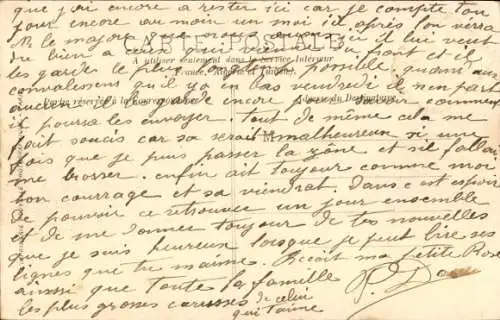 que j'ai encore a rester ici car je compte ton
jour encore au moin un mois ici après l'on verra
le major que nous avons ici il lui veut
du bien a ceux qui viennent du front et il
les garde le plus longtemps possible quand aux
convalessens qu'il y a en bas vendredi il n'en part
aucun il les garde encore pour savoir comment
il pourra les envoyer. tout de même cela me
fait soucis car sa serait malheureux si une
fois que je puis passer la zône et s'il fallait
me brosser. enfin ait toujour comme moi
bon courrage et sa viendrat. Dans c'est espoir
de pouvoir ce retrouver un jour ensemble
et de me donner toujour de tes nouvelles
que je suis heureux lorsque je peut lire ses
lignes que tu maime. Reçoit ma petite Rose
ainssi que toute la famille
les plus grosses caresses de celui
qui t'aime
P.
CARTE POSTALE
A utiliser seulement dans le Service Intérieur
(France, Algérie et Tunisie).
Partie réservée à la correspondance
Adresse du Destinataire
M